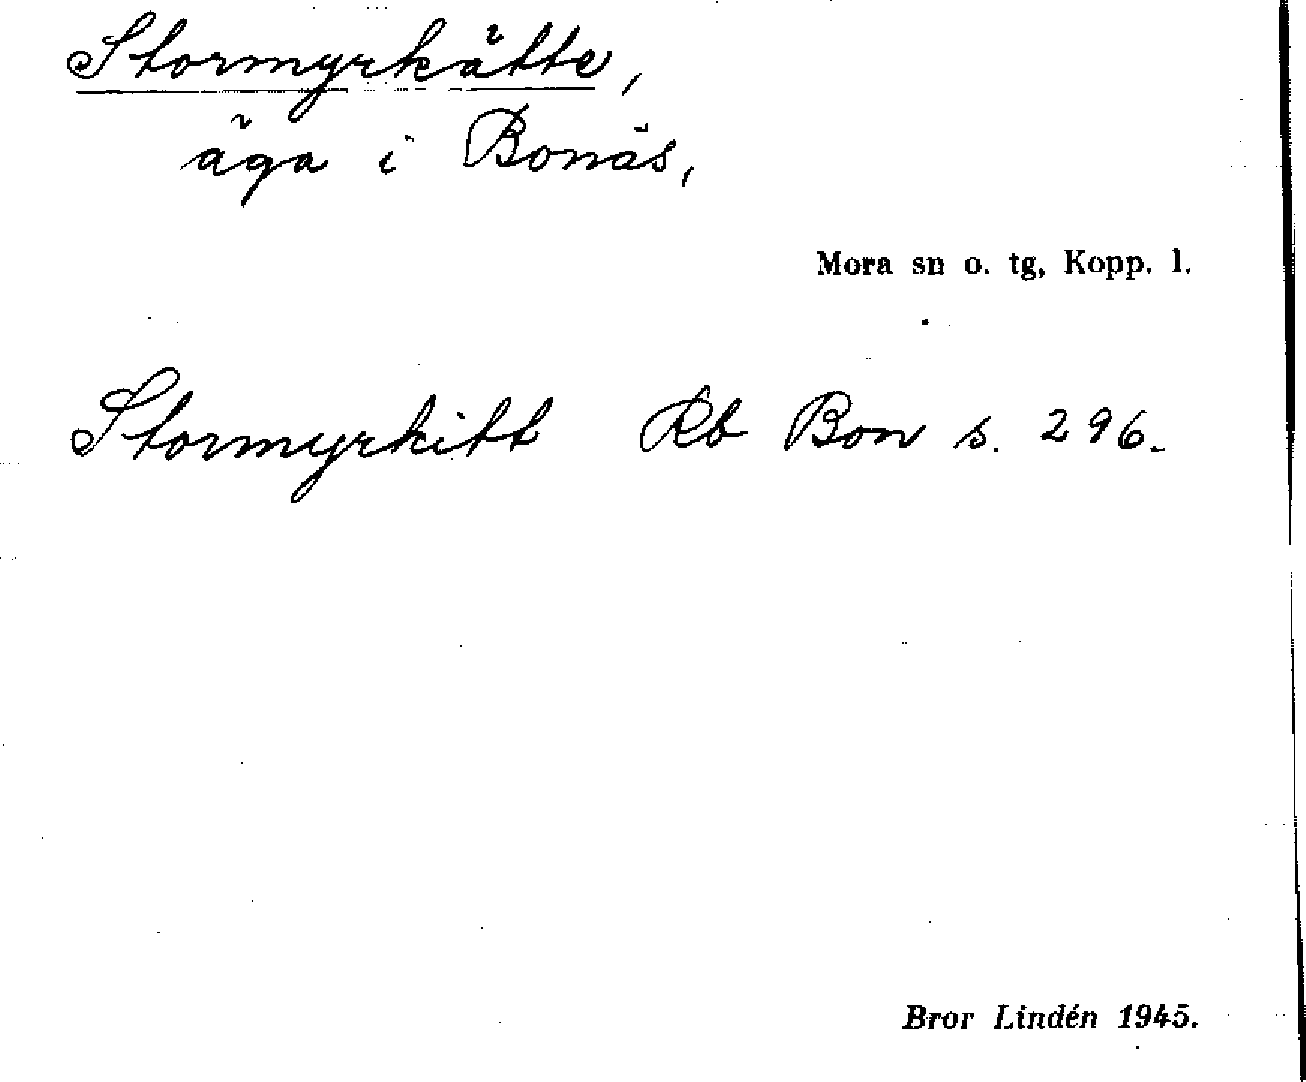 Stormyrkätte,
äga i Bonäs,
Mora sn o. tg, Kopp. l.
Stormyrkitt Rb Bon s. 296.
Bror Lindén 1945.